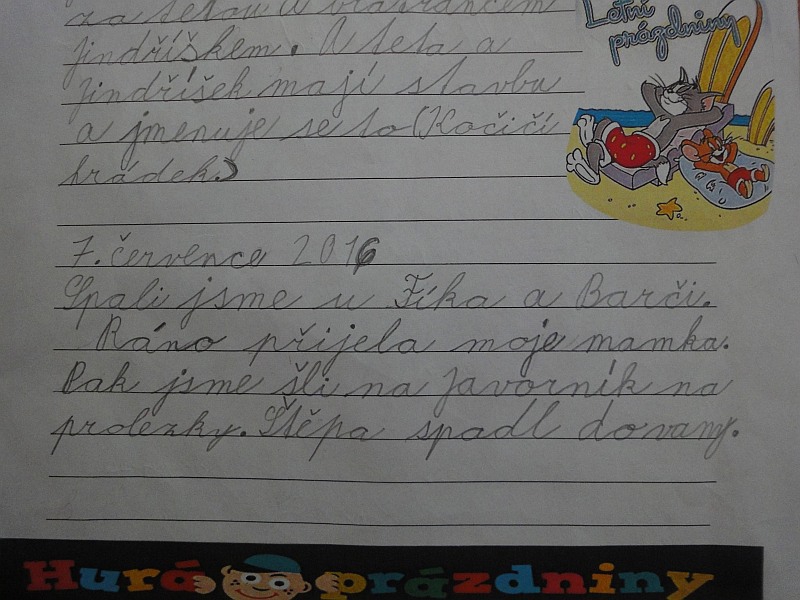 za tetou a bratrancem
Jindříškem. A teta a
Jindříšek mají stavbu
a jmenuje se to (Kočičí
hrádek.)
Letní
prázdniny
7. července 2016
Spali jsme u Fíka a Barči.
Ráno přijela moje mamka.
Pak jsme šli na Javorník na
prolezky. Štěpa spadl do vany.
Hurá prázdniny